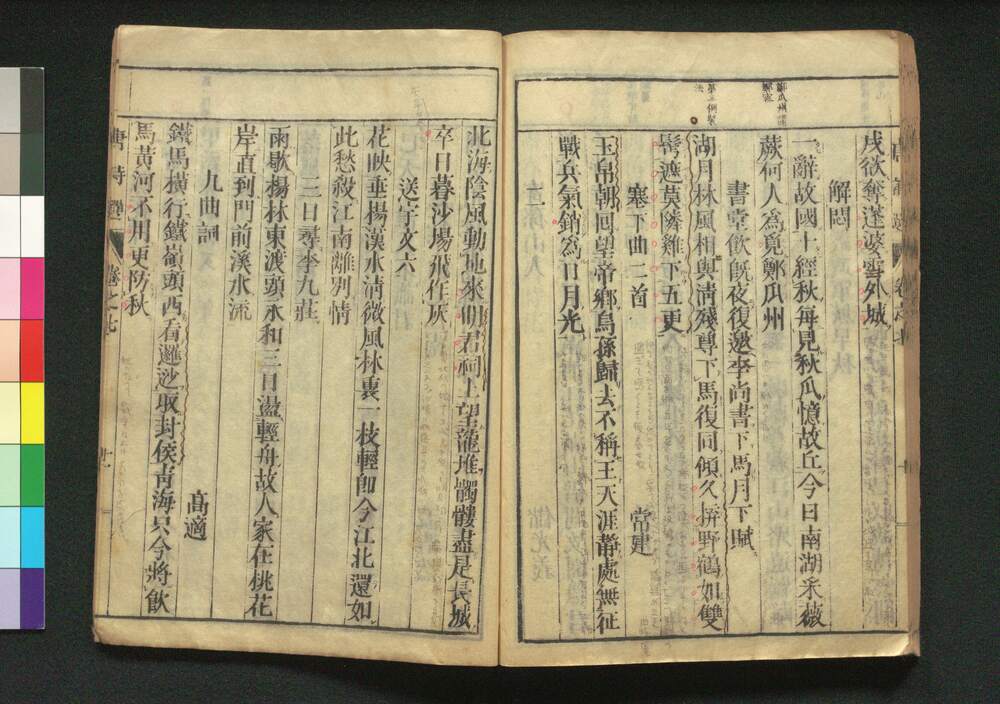 戍欲奪蓬婆雪外城
解悶
一辭故國十經秋每見秋瓜憶故丘今日南湖采薇
蕨何人爲覓鄭瓜州
書堂飲旣夜復邀李尚書下馬月下賦
湖月林風相與清殘尊下馬復同傾久拚野鶴如雙
鬢遮莫隣雞下五更
塞下曲二首 常建
玉帛朝回望帝鄉烏孫歸去不稱王天涯靜處無征
戰兵氣銷爲日月光
北海陰風動地來明君祠上望龍堆髑髏盡是長城
卒日暮沙場飛作灰
送宇文六
花映垂楊漢水清微風林裏一枝輕卽今江北還如
此愁殺江南離別情
三日尋李九莊
雨歇楊林東渡頭永和三日盪輕舟故人家在桃花
岸直到門前溪水流
九曲詞 高適
鐵馬橫行鐵嶺頭西看邏逤取封侯靑海只今將飲
馬黃河不用更防秋
唐詩選 卷之七